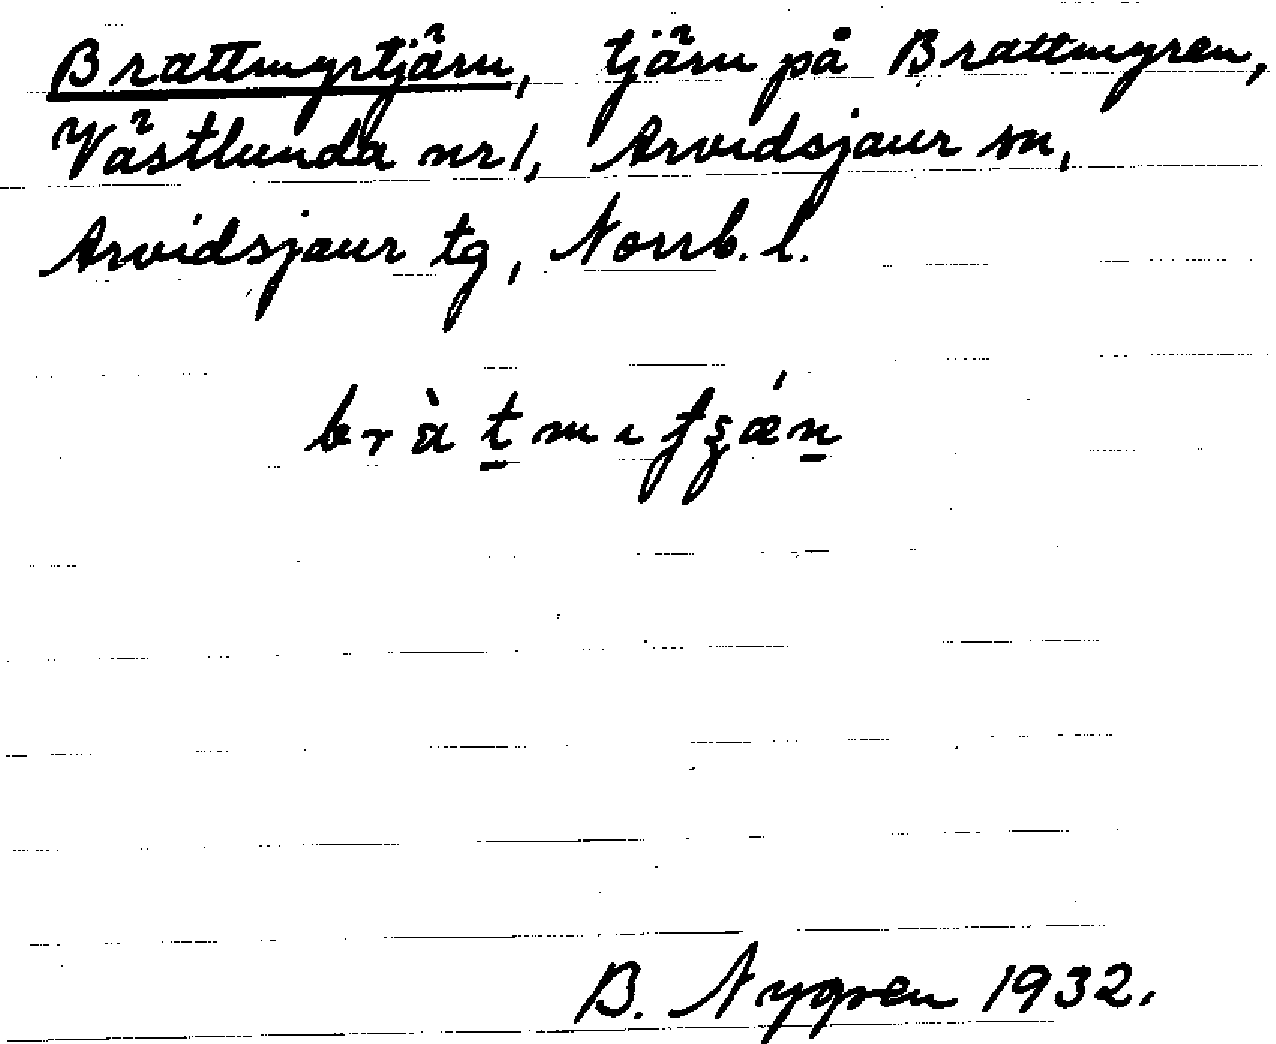 Brattmyrtjärn, tjärn på Brattmyren,
Västlunda nr 1, Arvidsjaur sn,
Arvidsjaur tg, Norrb. l.
B. Nygren 1932.